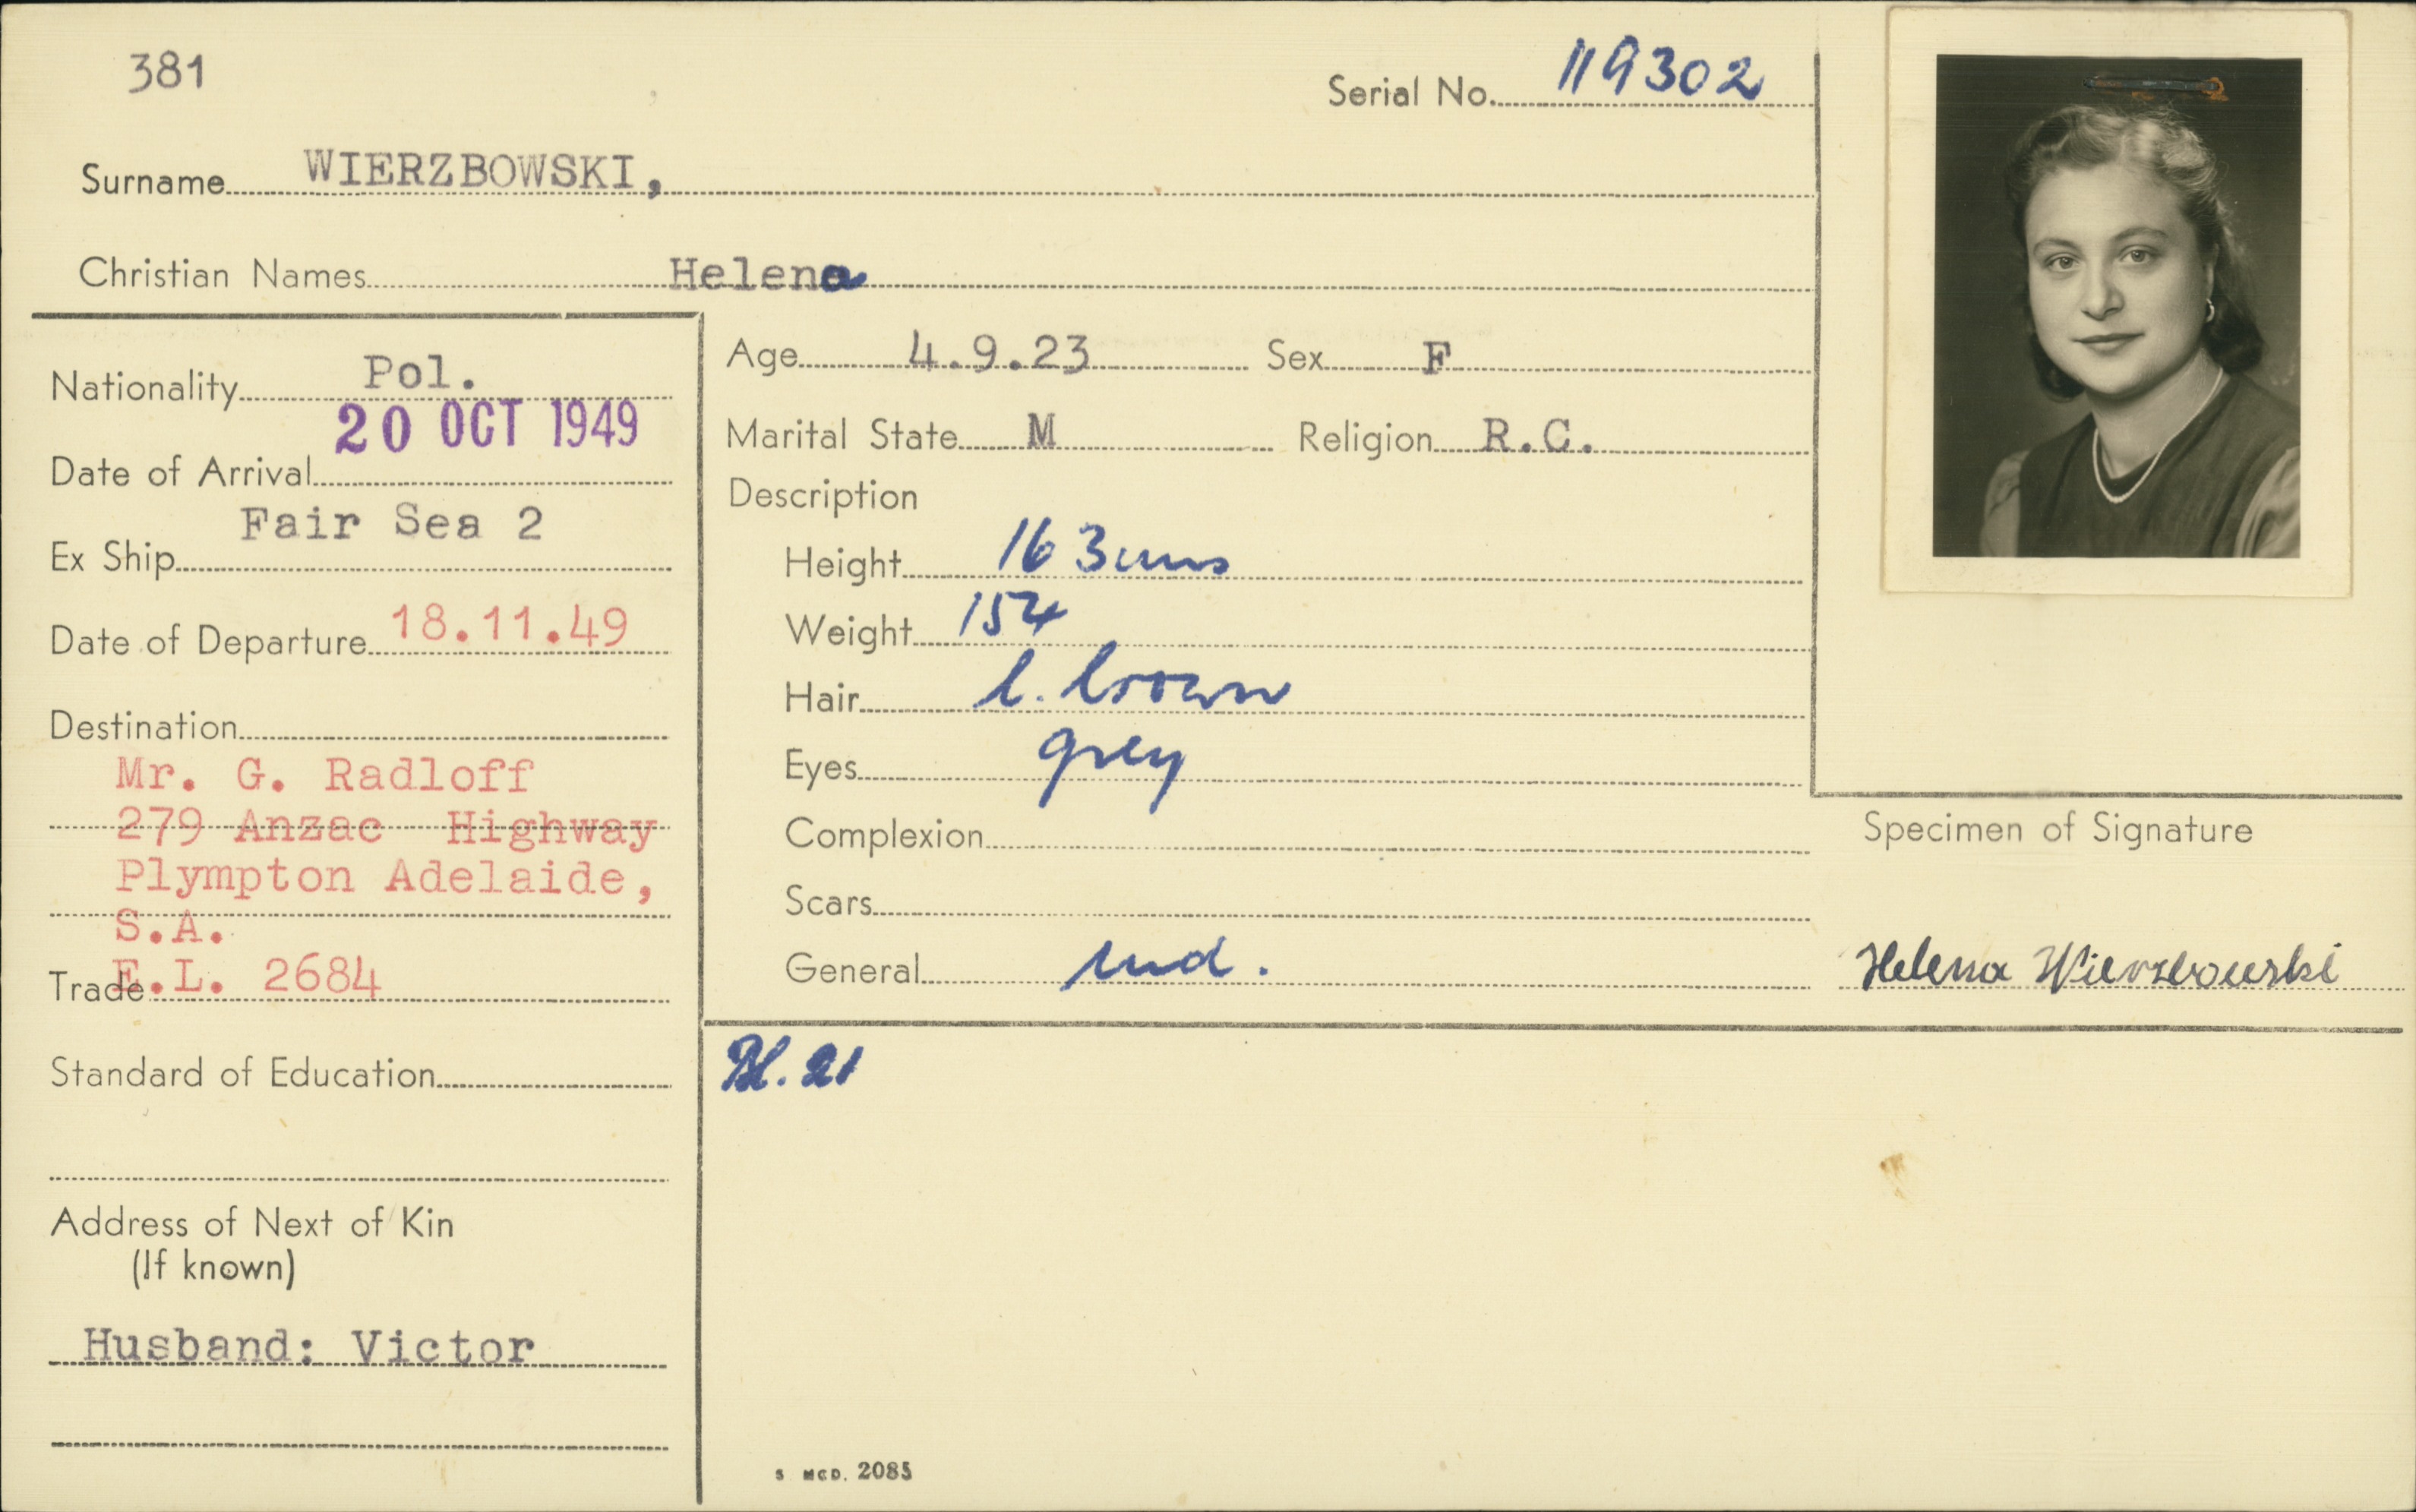 381
Serial No. 119302
Surname WIERZBOWSKI,
Christian Names Helena
Nationality Pol.
Date of Arrival 20 OCT 1949
Ex Ship Fair Sea 2
Date of Departure 18.11.49
Destination
Mr. G. Radloff
279 Anzac Highway
Plympton Adelaide,
S.A.
Trade E.L. 2684
Standard of Education
Address of Next of Kin
(If known)
Husband: Victor
Age 4.9.23 Sex F
Marital State M Religion R.C.
Description
Height 163 cms
Weight 154
Hair l. brown
Eyes grey
Complexion
Scars
General md.
Specimen of Signature
Helena Wierzbowski
Bl. 21
S MCD. 2085